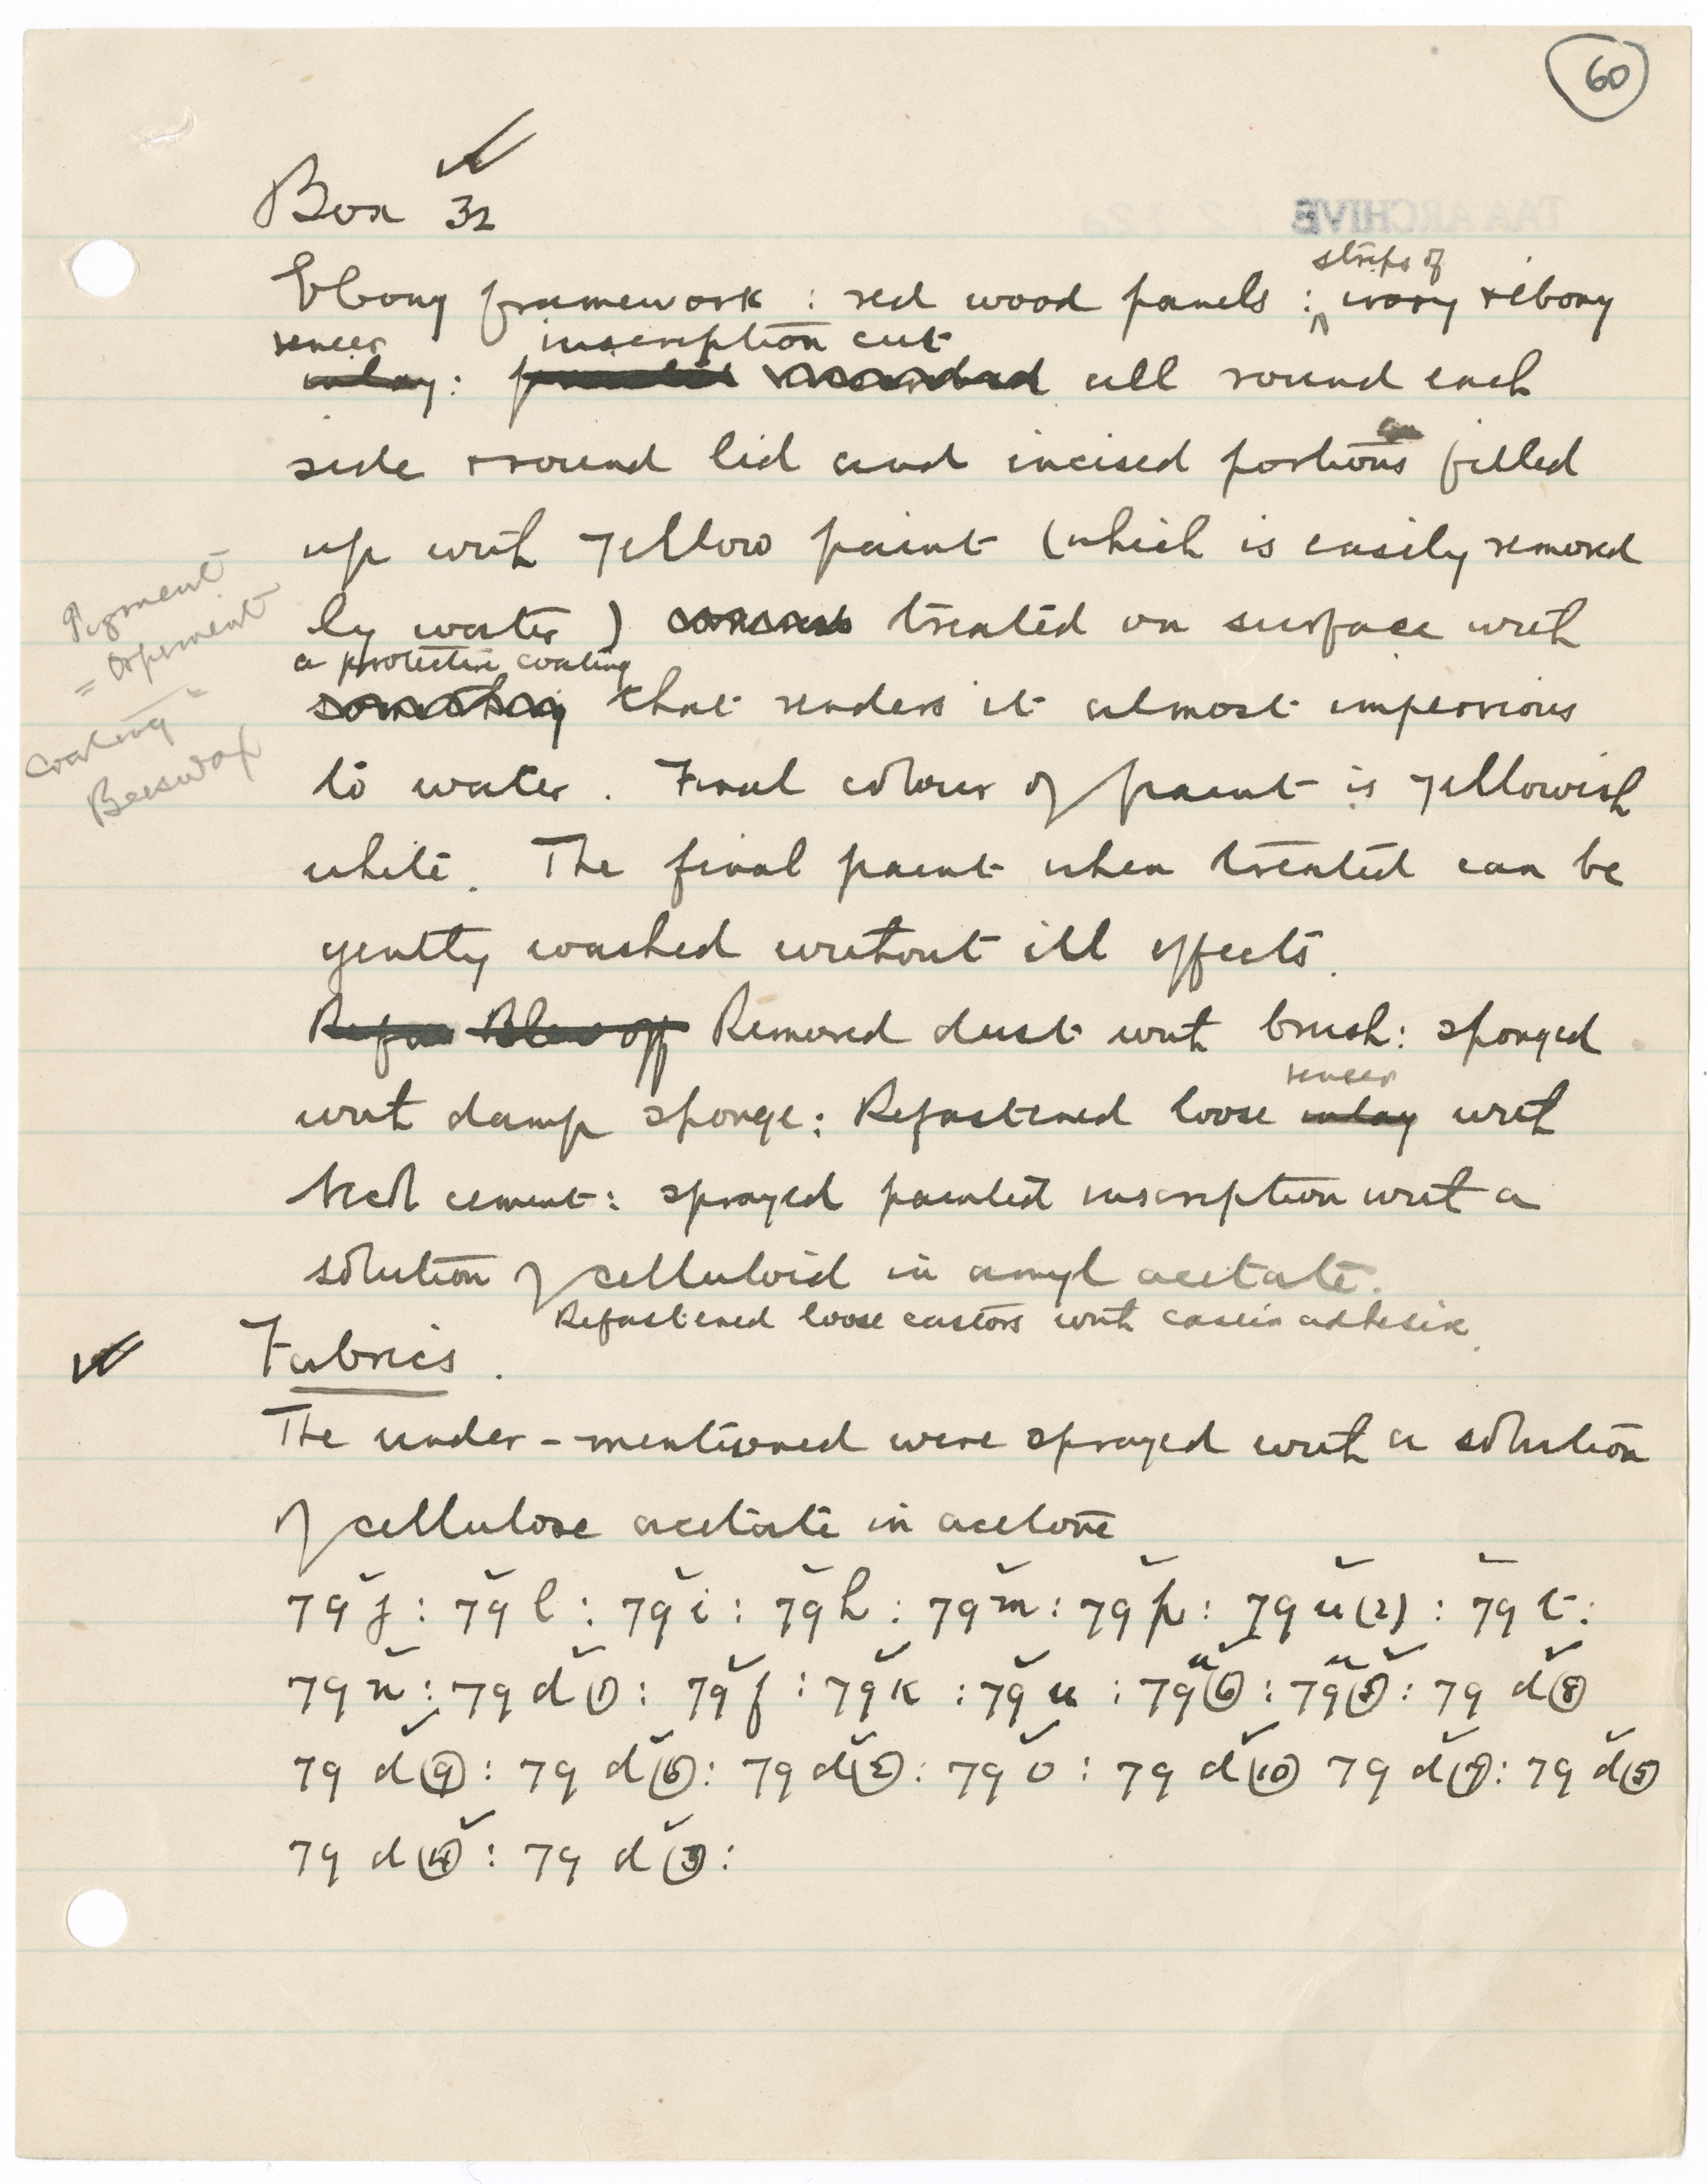 60
Box 32
strips of
Ebony framework : red wood panels : ivory & ebony
veneer inscription cut
inlay: painted all round each
side & round lid and incised portions filled
up with yellow paint (which is easily removed
by water) treated on surface with
a protective coating
something that renders it almost impervious
to water. Final colour of paint is yellowish
white. The final paint when treated can be
gently washed without ill effects.
Refas Blew off Removed dust with brush: sponged
veneer
with damp sponge: Refastened loose inlay with
cement: sprayed painted inscription with a
solution of celluloid in amyl acetate.
Refastened loose castors with casein adhesive.
Pigment
= Orpiment
Coating =
Beeswax
Fabrics.
The under-mentioned were sprayed with a solution
of cellulose acetate in acetone
79 j : 79 l : 79 i : 79 h : 79 m : 79 p : 79 u (2) : 79 t :
79 n : 79 d (1) : 79 f : 79 k : 79 u : 79 u (6) : 79 u : 79 d (8)
79 d (9) : 79 d (6) : 79 d (2) : 79 o : 79 d (10) 79 d (7) : 79 d (5)
79 d (4) : 79 d (3) :
TAA ARCHIVE